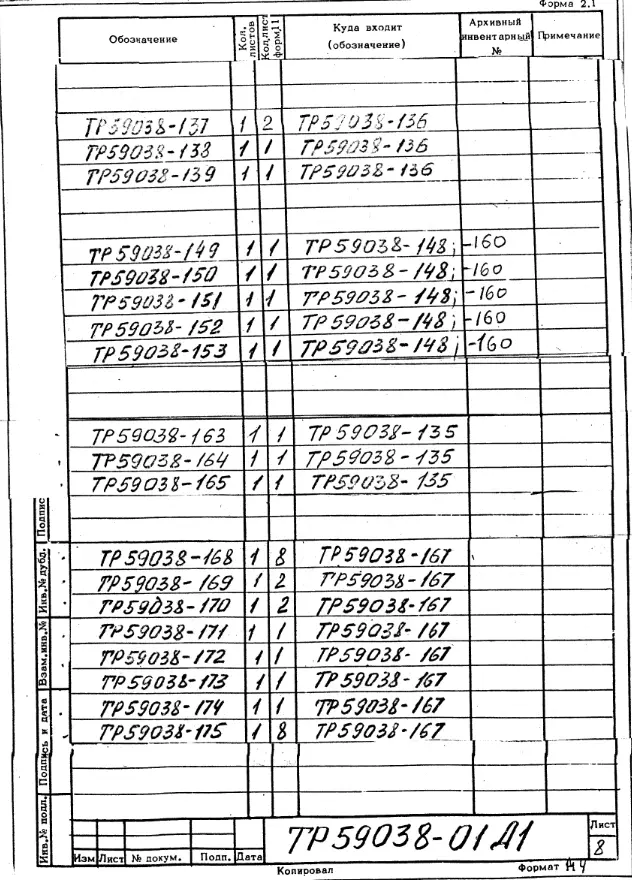 Форма 2.1
Обозначение Кол. листов Кол. лист форм.11 Куда входит (обозначение) Архивный инвентарный № Примечание
ТР59038-137 1 2 ТР59038-136
ТР59038-138 1 1 ТР59038-136
ТР59038-139 1 1 ТР59038-136
ТР59038-149 1 1 ТР59038-148; -160
ТР59038-150 1 1 ТР59038-148; -160
ТР59038-151 1 1 ТР59038-148; -160
ТР59038-152 1 1 ТР59038-148; -160
ТР59038-153 1 1 ТР59038-148; -160
ТР59038-163 1 1 ТР59038-135
ТР59038-164 1 1 ТР59038-135
ТР59038-165 1 1 ТР59038-135
ТР59038-168 1 8 ТР59038-167
ТР59038-169 1 2 ТР59038-167
ТР59038-170 1 2 ТР59038-167
ТР59038-171 1 1 ТР59038-167
ТР59038-172 1 1 ТР59038-167
ТР59038-173 1 1 ТР59038-167
ТР59038-174 1 1 ТР59038-167
ТР59038-175 1 8 ТР59038-167
Инв.№ подл. Подпись и дата Взам.инв.№ Инв.№ дубл. Подпис
ТР59038-01 Д1
Лист
8
Изм Лист № докум. Подп. Дата
Копировал
Формат А4